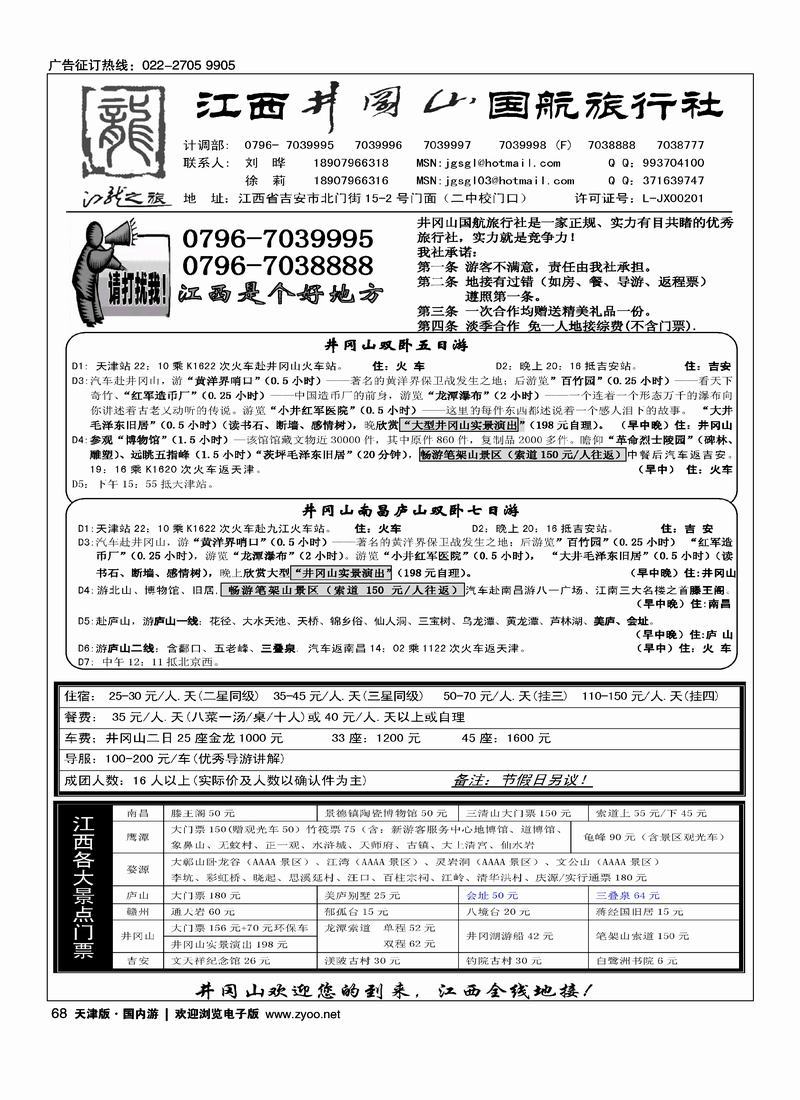 广告征订热线：022-2705 9905
龍
江龙之旅
江西井冈山国航旅行社
计调部： 0796- 7039995 7039996 7039997 7039998 (F) 7038888 7038777
联系人： 刘 晔 18907966318 MSN:jgsgl@hotmail.com Q Q：993704100
徐 莉 18907966316 MSN:jgsgl03@hotmail.com Q Q：371639747
地 址：江西省吉安市北门街 15-2 号门面（二中校门口） 许可证号：L-JX00201
请打扰我！
0796-7039995
0796-7038888
江西是个好地方
井冈山国航旅行社是一家正规、实力有目共睹的优秀
旅行社，实力就是竞争力！
我社承诺：
第一条 游客不满意，责任由我社承担。
第二条 地接有过错（如房、餐、导游、返程票）
遵照第一条。
第三条 一次合作均赠送精美礼品一份。
第四条 淡季合作 免一人地接综费(不含门票).
井冈山双卧五日游
D1: 天津站 22：10 乘 K1622 次火车赴井冈山火车站。 住：火 车 D2：晚上 20：16 抵吉安站。 住：吉安
D3:汽车赴井冈山，游“黄洋界哨口”（0.5 小时）——著名的黄洋界保卫战发生之地；后游览“百竹园”（0.25 小时）——看天下
奇竹、“红军造币厂”（0.25 小时）——中国造币厂的前身，游览“龙潭瀑布”（2 小时）——一个连着一个形态万千的瀑布向
你讲述着古老又动听的传说。游览“小井红军医院”（0.5 小时）——这里的每件东西都述说着一个感人泪下的故事。 “大井
毛泽东旧居”（0.5 小时）（读书石、断墙、感情树），晚欣赏“大型井冈山实景演出”（198 元自理）。 （早中晚）住：井冈山
D4:参观“博物馆”（1.5 小时）—该馆馆藏文物近 30000 件，其中原件 860 件，复制品 2000 多件。瞻仰“革命烈士陵园”（碑林、
雕塑）、远眺五指峰（1.5 小时）“茨坪毛泽东旧居”（20 分钟），畅游笔架山景区（索道 150 元/人往返）中餐后汽车返吉安。
19：16 乘 K1620 次火车返天津。 （早中） 住：火车
D5：下午 15：55 抵天津站。
井冈山南昌庐山双卧七日游
D1:天津站 22：10 乘 K1622 次火车赴九江火车站。 住：火车 D2：晚上 20：16 抵吉安站。 住：吉 安
D3:汽车赴井冈山，游“黄洋界哨口”（0.5 小时）——著名的黄洋界保卫战发生之地；后游览”百竹园”（0.25 小时） “红军造
币厂”（0.25 小时），游览“龙潭瀑布”（2 小时）。游览“小井红军医院”（0.5 小时）， “大井毛泽东旧居”（0.5 小时）（读
书石、断墙、感情树），晚上欣赏大型“井冈山实景演出”（198 元自理）。 （早中晚）住:井冈山
D4:游北山、博物馆、旧居, 畅游笔架山景区（索道 150 元/人往返）汽车赴南昌游八一广场、江南三大名楼之首滕王阁。
（早中晚）住:南昌
D5:赴庐山，游庐山一线：花径、大水天池、天桥、锦乡俗、仙人洞、三宝树、乌龙潭、黄龙潭、芦林湖、美庐、会址。
（早中晚）住:庐 山
D6:游庐山二线：含鄱口、五老峰、三叠泉. 汽车返南昌 14：02 乘 1122 次火车返天津。 （早中）住：火 车
D7: 中午 12：11 抵北京西。
住宿： 25-30 元/人.天(二星同级) 35-45 元/人.天(三星同级) 50-70 元/人.天(挂三) 110-150 元/人.天(挂四)
餐费： 35 元/人.天(八菜一汤/桌/十人)或 40 元/人.天以上或自理
车费：井冈山二日 25 座金龙 1000 元 33 座：1200 元 45 座：1600 元
导服：100-200 元/车(优秀导游讲解)
成团人数：16 人以上(实际价及人数以确认件为主) 备注：节假日另议！
江西各大景点门票
南昌 滕王阁 50 元 景德镇陶瓷博物馆 50 元 三清山大门票 150 元 索道上 55 元/下 45 元
鹰潭 大门票 150(赠观光车 50) 竹筏票 75（含：新游客服务中心地博馆、道博馆、
象鼻山、无蚊村、正一观、水浒城、天师府、古镇、大上清宫、仙水岩 龟峰 90 元（含景区观光车）
婺源 大鄣山卧龙谷（AAAA 景区）、江湾（AAAA 景区）、灵岩洞（AAAA 景区）、文公山（AAAA 景区）
李坑、彩虹桥、晓起、思溪延村、汪口、百柱宗祠、江岭、清华洪村、庆源/实行通票 180 元
庐山 大门票 180 元 美庐别墅 25 元 会址 50 元 三叠泉 64 元
赣州 通人岩 60 元 郁孤台 15 元 八境台 20 元 蒋经国旧居 15 元
井冈山 大门票 156 元+70 元环保车 龙潭索道 单程 52 元 井冈湖游船 42 元 笔架山索道 150 元
井冈山实景演出 198 元 双程 62 元
吉安 文天祥纪念馆 26 元 渼陂古村 30 元 钓院古村 30 元 白鹭洲书院 6 元
井冈山欢迎您的到来，江西全线地接！
68 天津版·国内游 | 欢迎浏览电子版 www.zyoo.net